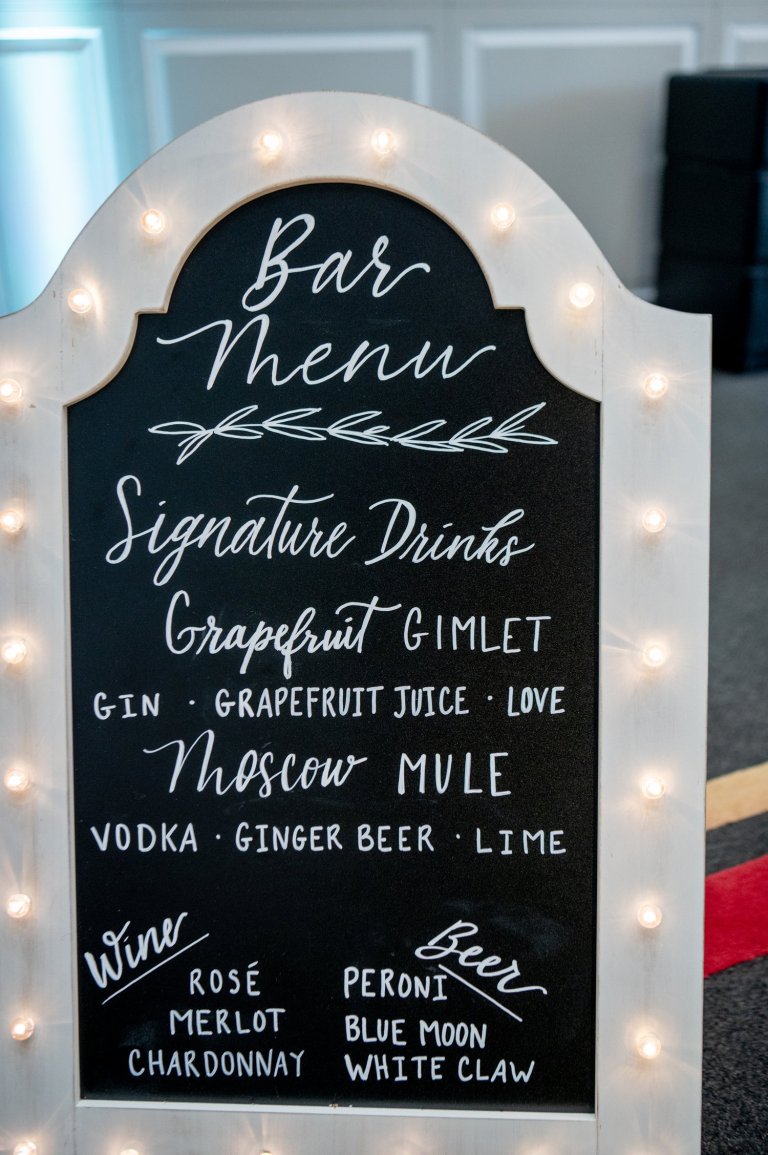 Bar
Menu
Signature Drinks
Grapefruit GIMLET
GIN · GRAPEFRUIT JUICE · LOVE
Moscow MULE
VODKA · GINGER BEER · LIME
Wine
ROSÉ
MERLOT
CHARDONNAY
Beer
PERONI
BLUE MOON
WHITE CLAW